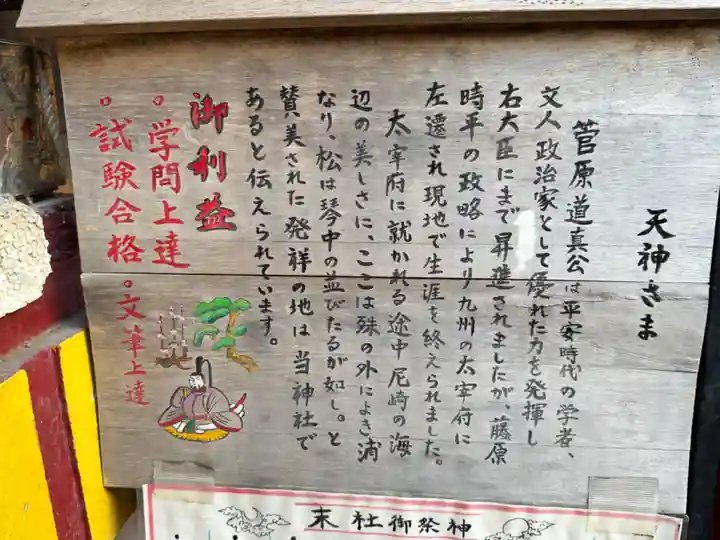 天神さま
菅原道真公は平安時代の学者、
文人政治家として優れた力を発揮し
右大臣にまで昇進されましたが、藤原
時平の政略により九州の太宰府に
左遷され現地で生涯を終えられました。
太宰府に就かれる途中尼崎の海
辺の美しさに、ここは殊の外によき浦
なり、松は琴中の並びたるが如し。と
賛美された発祥の地は当神社で
あると伝えられています。
御利益
◦学問上達
◦試験合格
◦文筆上達
末社御祭神